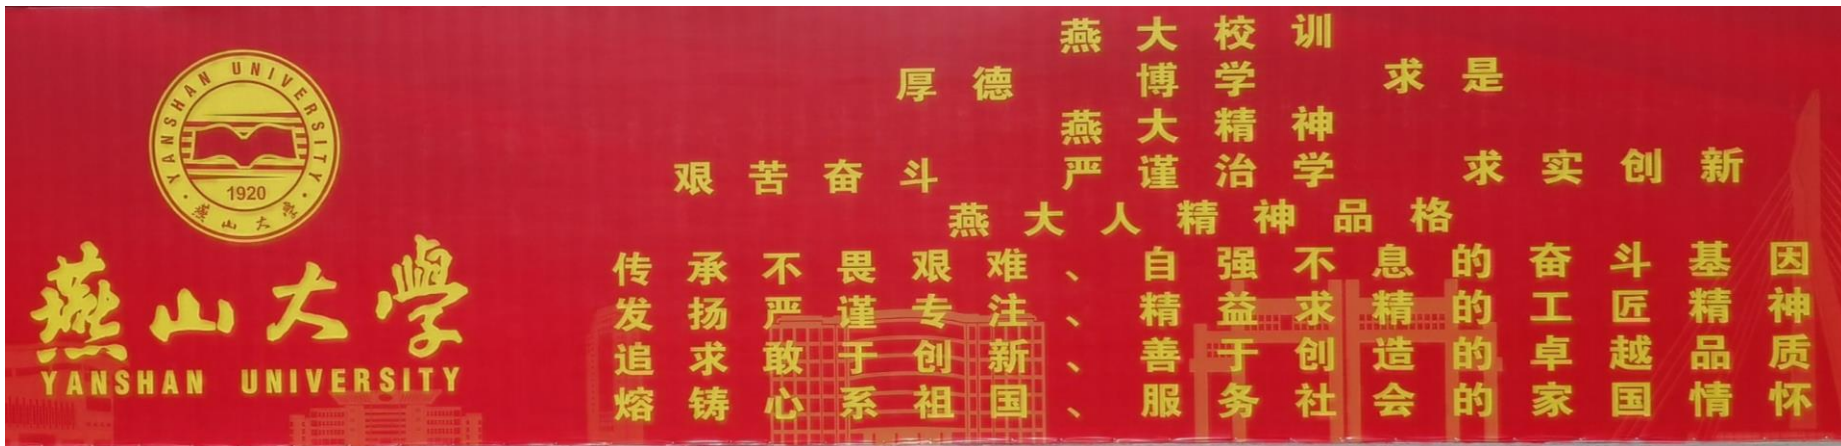 YANSHAN UNIVERSITY
1920
燕山大学
燕山大學
YANSHAN UNIVERSITY
燕大校训
厚德 博学 求是
燕大精神
艰苦奋斗 严谨治学 求实创新
燕大人精神品格
传承不畏艰难、自强不息的奋斗基因
发扬严谨专注、精益求精的工匠精神
追求敢于创新、善于创造的卓越品质
熔铸心系祖国、服务社会的家国情怀